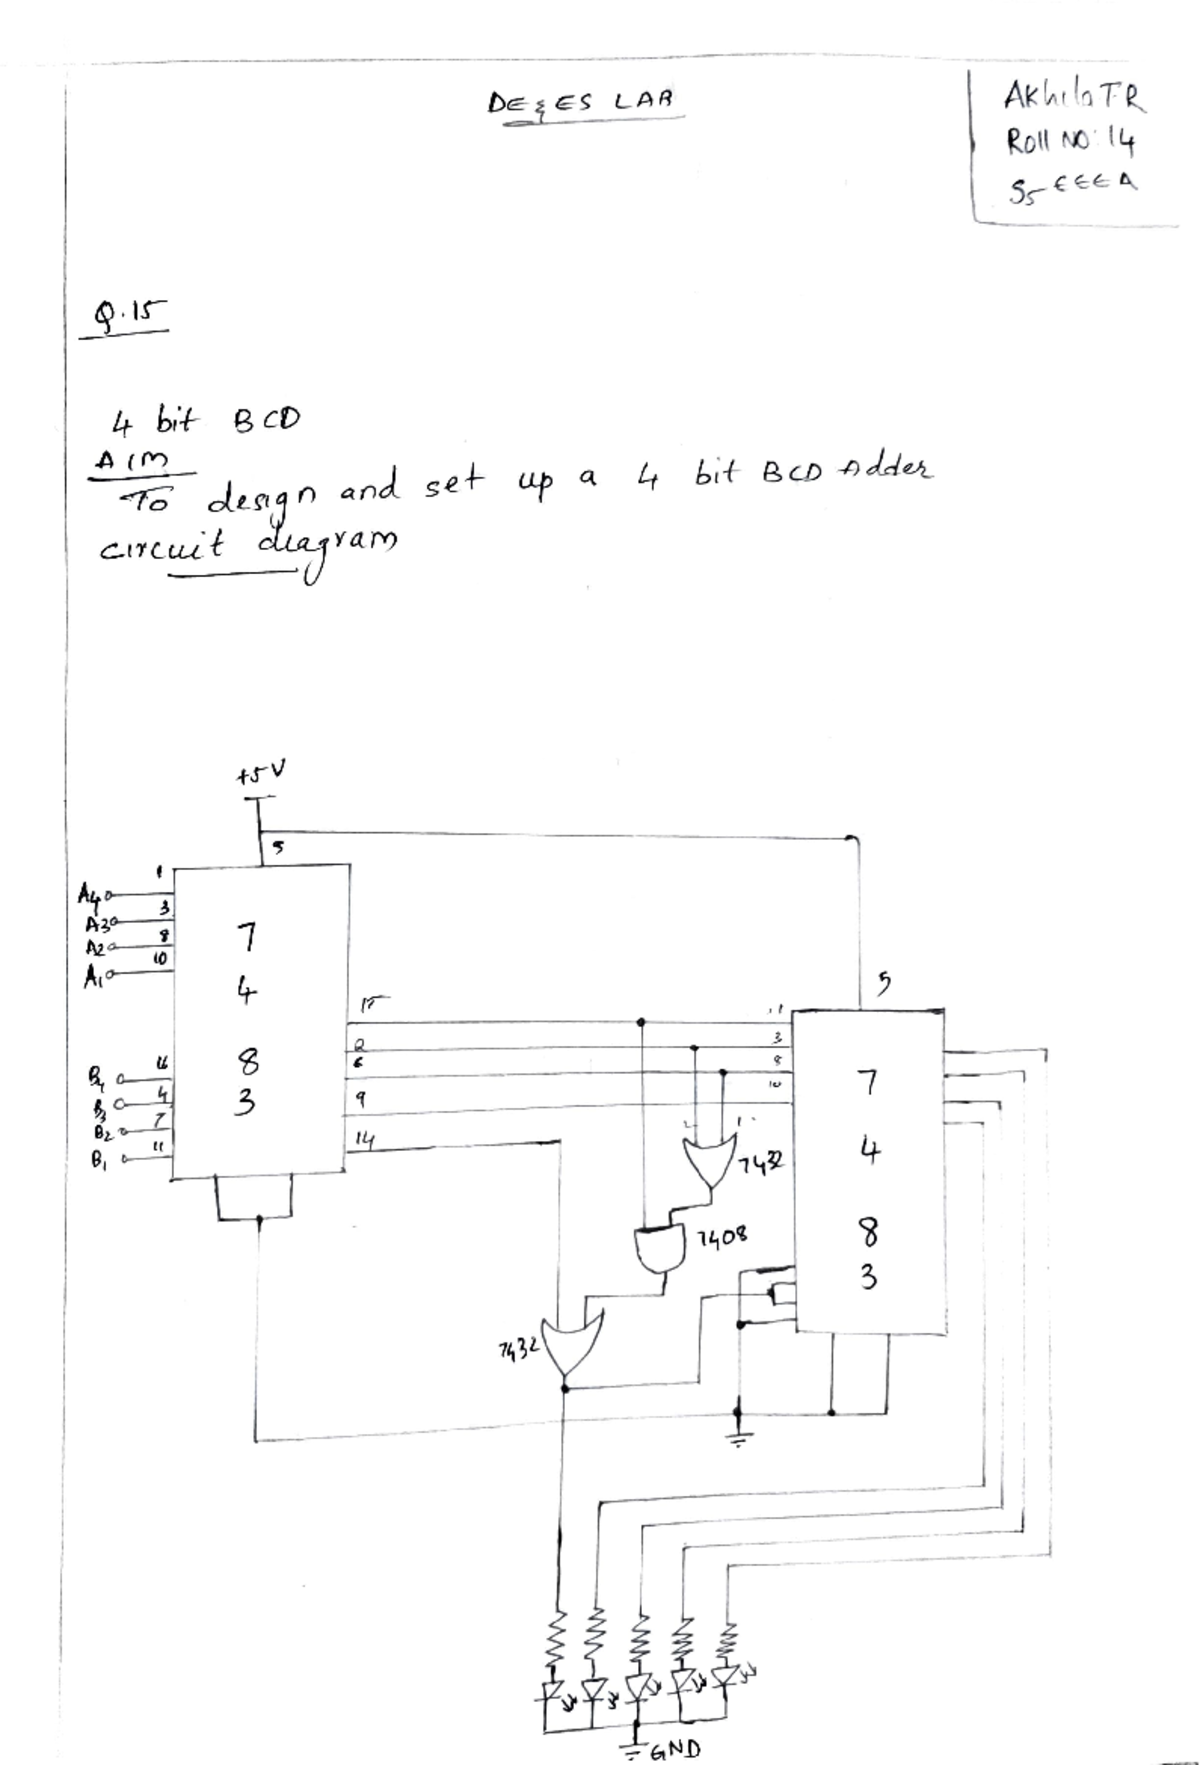 DE & ES LAB
Akhila T R
Roll NO: 14
S5 EEE A
Q.15
4 bit BCD
AIM
To design and set up a 4 bit BCD Adder
circuit diagram
+5V
5
1
A4
3
A3
8
A2
10
A1
7
4
8
3
15
2
6
9
14
16
B4
4
B3
7
B2
11
B1
5
3
8
10
7
4
8
3
2
1
7432
7408
7432
GND